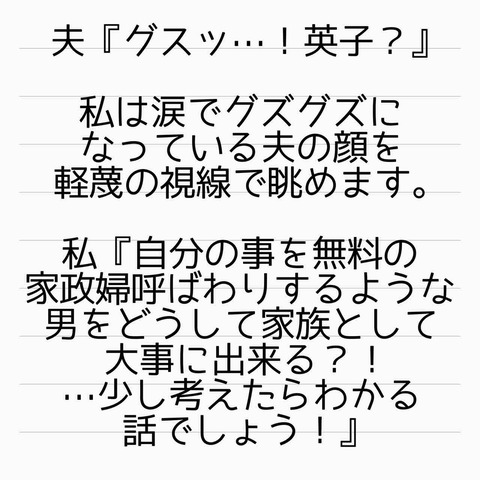 夫『グスッ…！英子？』
私は涙でグズグズに
なっている夫の顔を
軽蔑の視線で眺めます。
私『自分の事を無料の
家政婦呼ばわりするような
男をどうして家族として
大事に出来る？！
…少し考えたらわかる
話でしょう！』